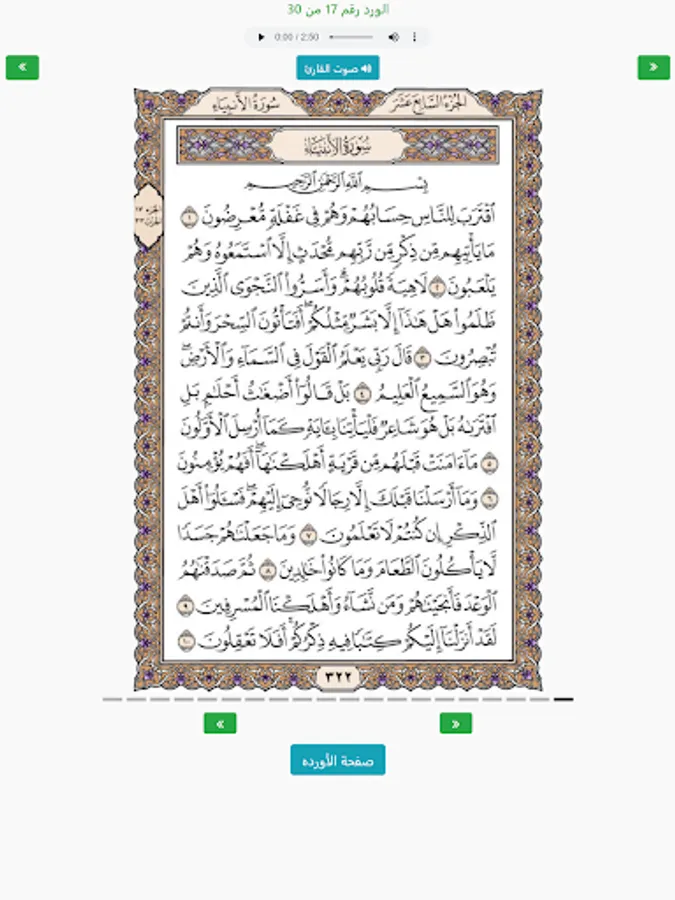 الورد رقم 17 من 30
0:00 / 2:50
صوت القارئ
الجزء السابع عشر
سورة الأنبياء
سُورَةُ الأَنبِيَاءِ
بِسْمِ ٱللَّهِ ٱلرَّحْمَٰنِ ٱلرَّحِيمِ
ٱقْتَرَبَ لِلنَّاسِ حِسَابُهُمْ وَهُمْ فِى غَفْلَةٍ مُّعْرِضُونَ ١
مَا يَأْتِيهِم مِّن ذِكْرٍ مِّن رَّبِّهِم مُّحْدَثٍ إِلَّا ٱسْتَمَعُوهُ وَهُمْ
يَلْعَبُونَ ٢ لَاهِيَةً قُلُوبُهُمْ ۗ وَأَسَرُّوا۟ ٱلنَّجْوَى ٱلَّذِينَ
ظَلَمُوا۟ هَلْ هَٰذَآ إِلَّا بَشَرٌ مِّثْلُكُمْ ۖ أَفَتَأْتُونَ ٱلسِّحْرَ وَأَنتُمْ
تُبْصِرُونَ ٣ قَالَ رَبِّى يَعْلَمُ ٱلْقَوْلَ فِى ٱلسَّمَآءِ وَٱلْأَرْضِ ۖ
وَهُوَ ٱلسَّمِيعُ ٱلْعَلِيمُ ٤ بَلْ قَالُوٓا۟ أَضْغَٰثُ أَحْلَٰمٍۭ بَلِ
ٱفْتَرَىٰهُ بَلْ هُوَ شَاعِرٌ فَلْيَأْتِنَا بِـَٔايَةٍ كَمَآ أُرْسِلَ ٱلْأَوَّلُونَ
٥ مَآ ءَامَنَتْ قَبْلَهُم مِّن قَرْيَةٍ أَهْلَكْنَٰهَآ ۖ أَفَهُمْ يُؤْمِنُونَ
٦ وَمَآ أَرْسَلْنَا قَبْلَكَ إِلَّا رِجَالًا نُّوحِىٓ إِلَيْهِمْ ۖ فَسْـَٔلُوٓا۟ أَهْلَ
ٱلذِّكْرِ إِن كُنتُمْ لَا تَعْلَمُونَ ٧ وَمَا جَعَلْنَٰهُمْ جَسَدًا
لَّا يَأْكُلُونَ ٱلطَّعَامَ وَمَا كَانُوا۟ خَٰلِدِينَ ٨ ثُمَّ صَدَقْنَٰهُمُ
ٱلْوَعْدَ فَأَنجَيْنَٰهُمْ وَمَن نَّشَآءُ وَأَهْلَكْنَا ٱلْمُسْرِفِينَ ٩
لَقَدْ أَنزَلْنَآ إِلَيْكُمْ كِتَٰبًا فِيهِ ذِكْرُكُمْ ۖ أَفَلَا تَعْقِلُونَ ١٠
٣٢٢
صفحة الأورده